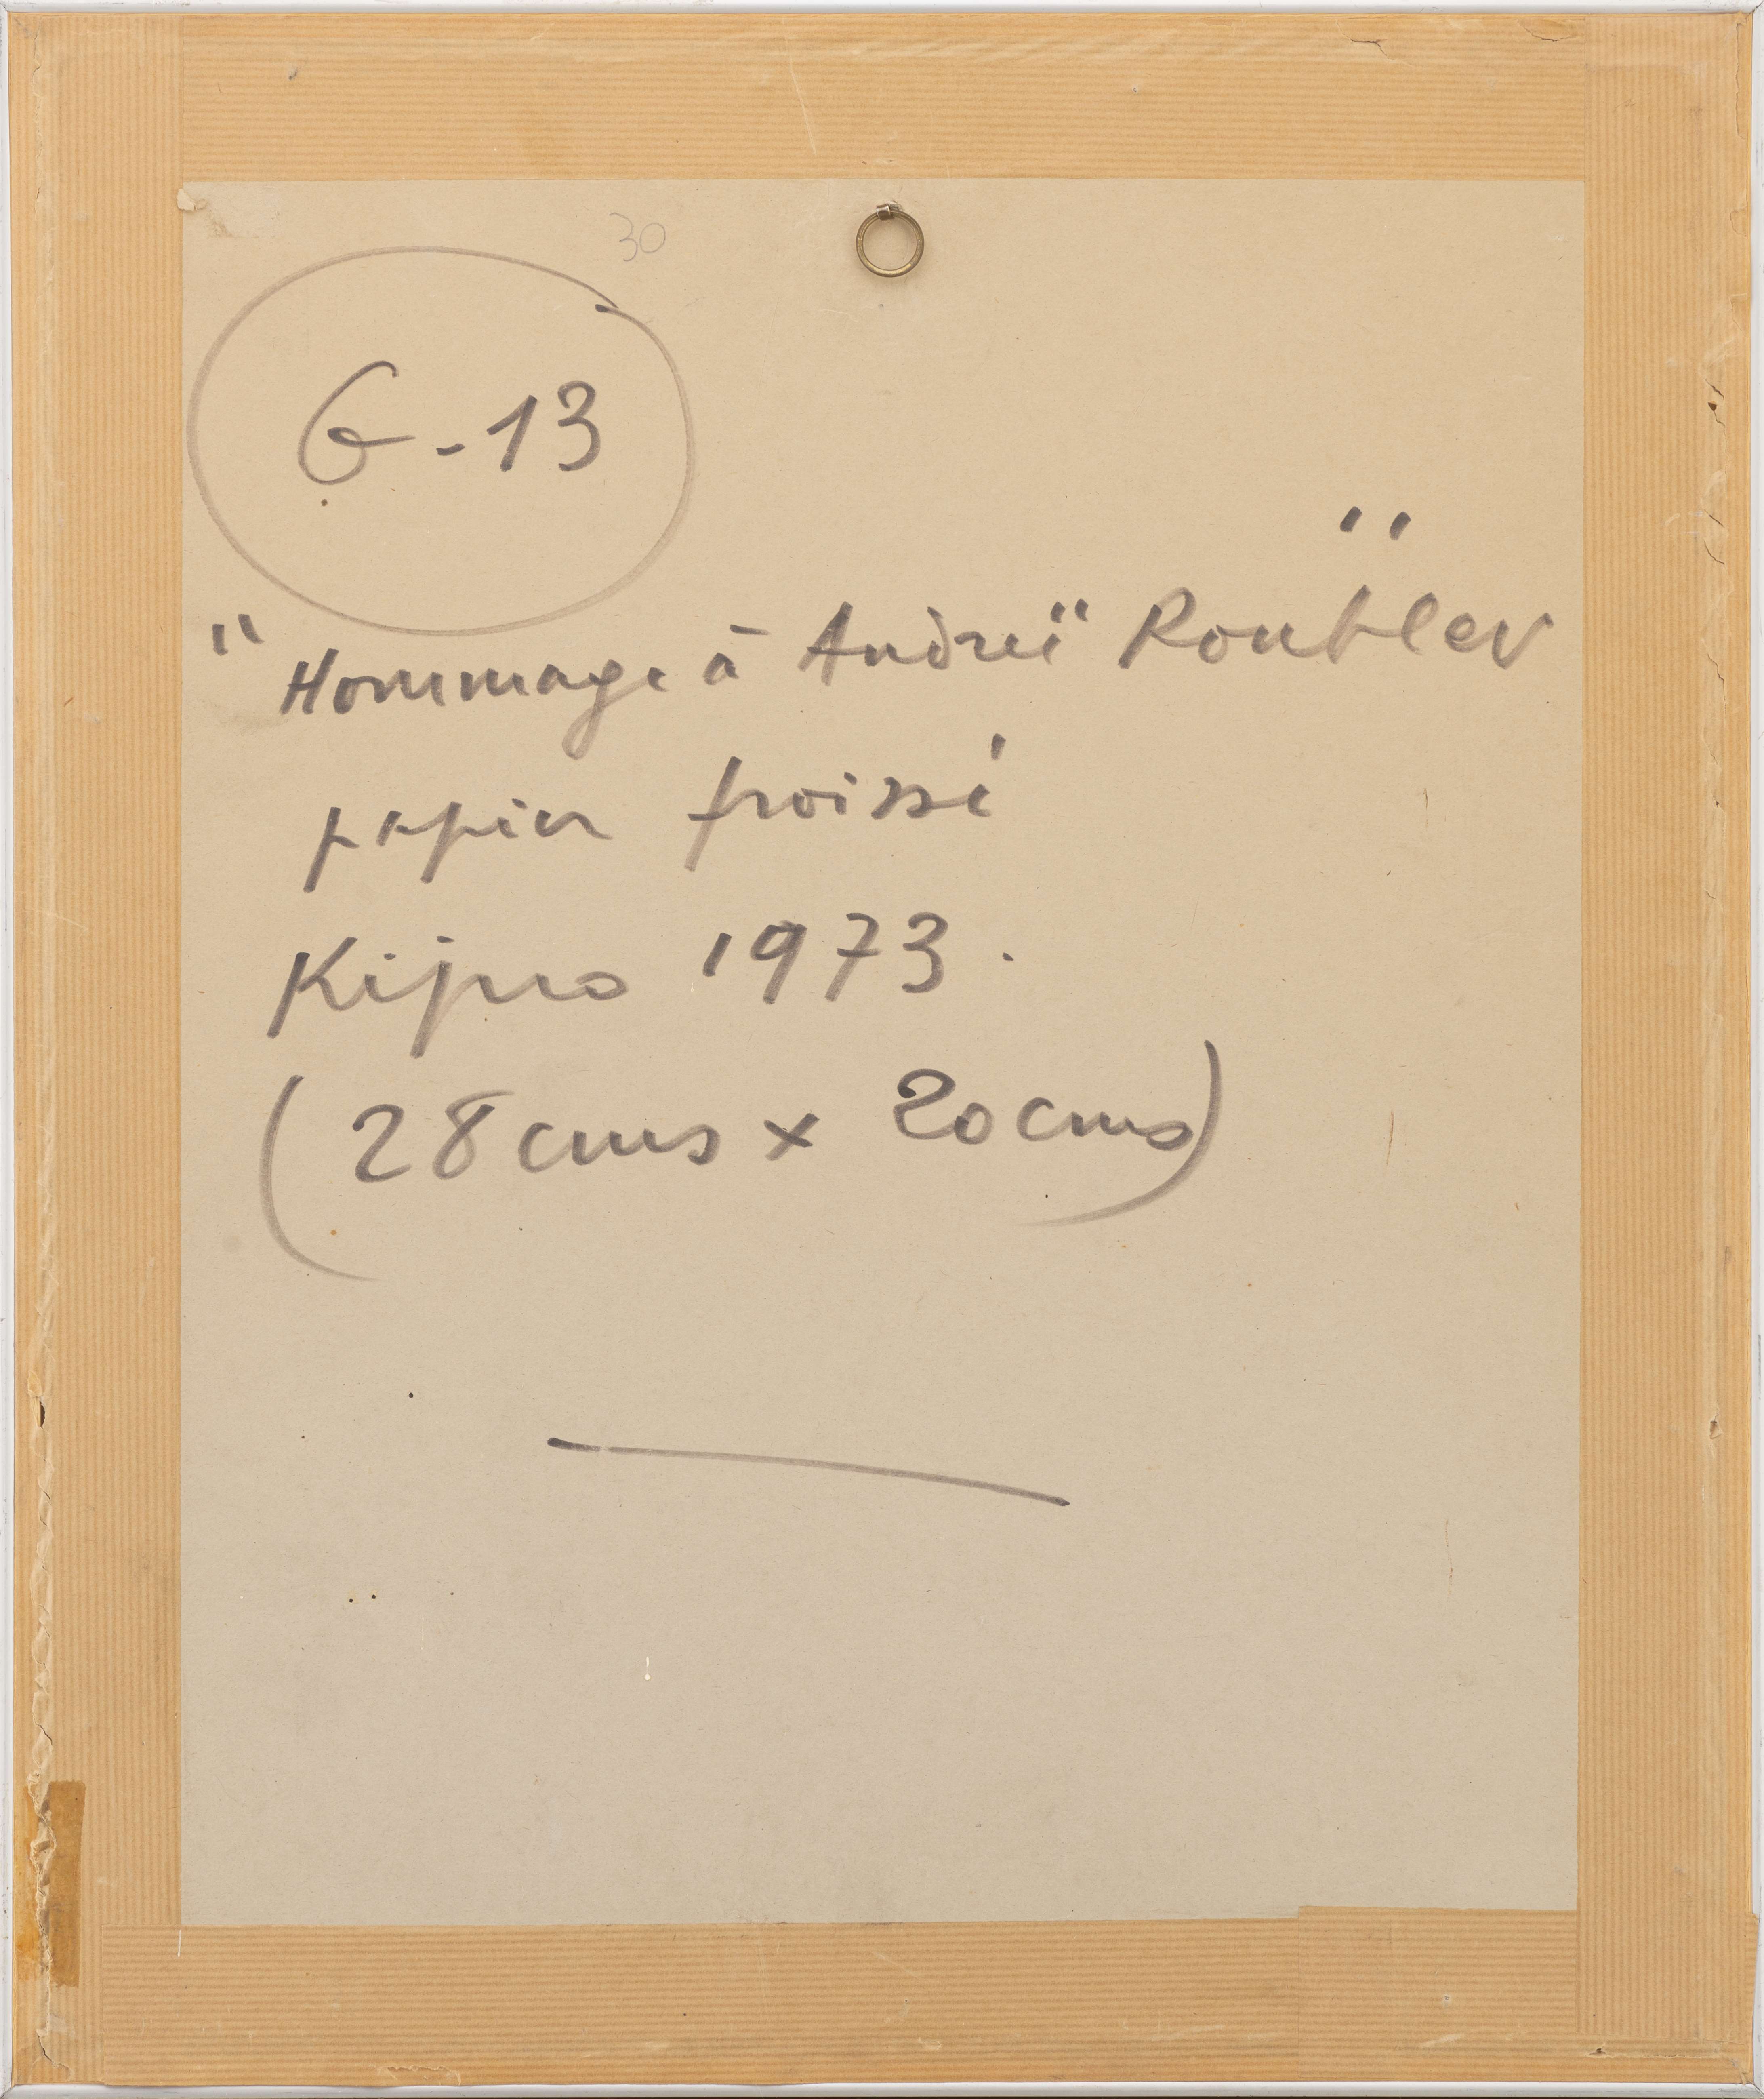 30
G-13
"Hommage à Andreï Roublev"
papier froissé
Kijno 1973.
(28cms x 20cms)